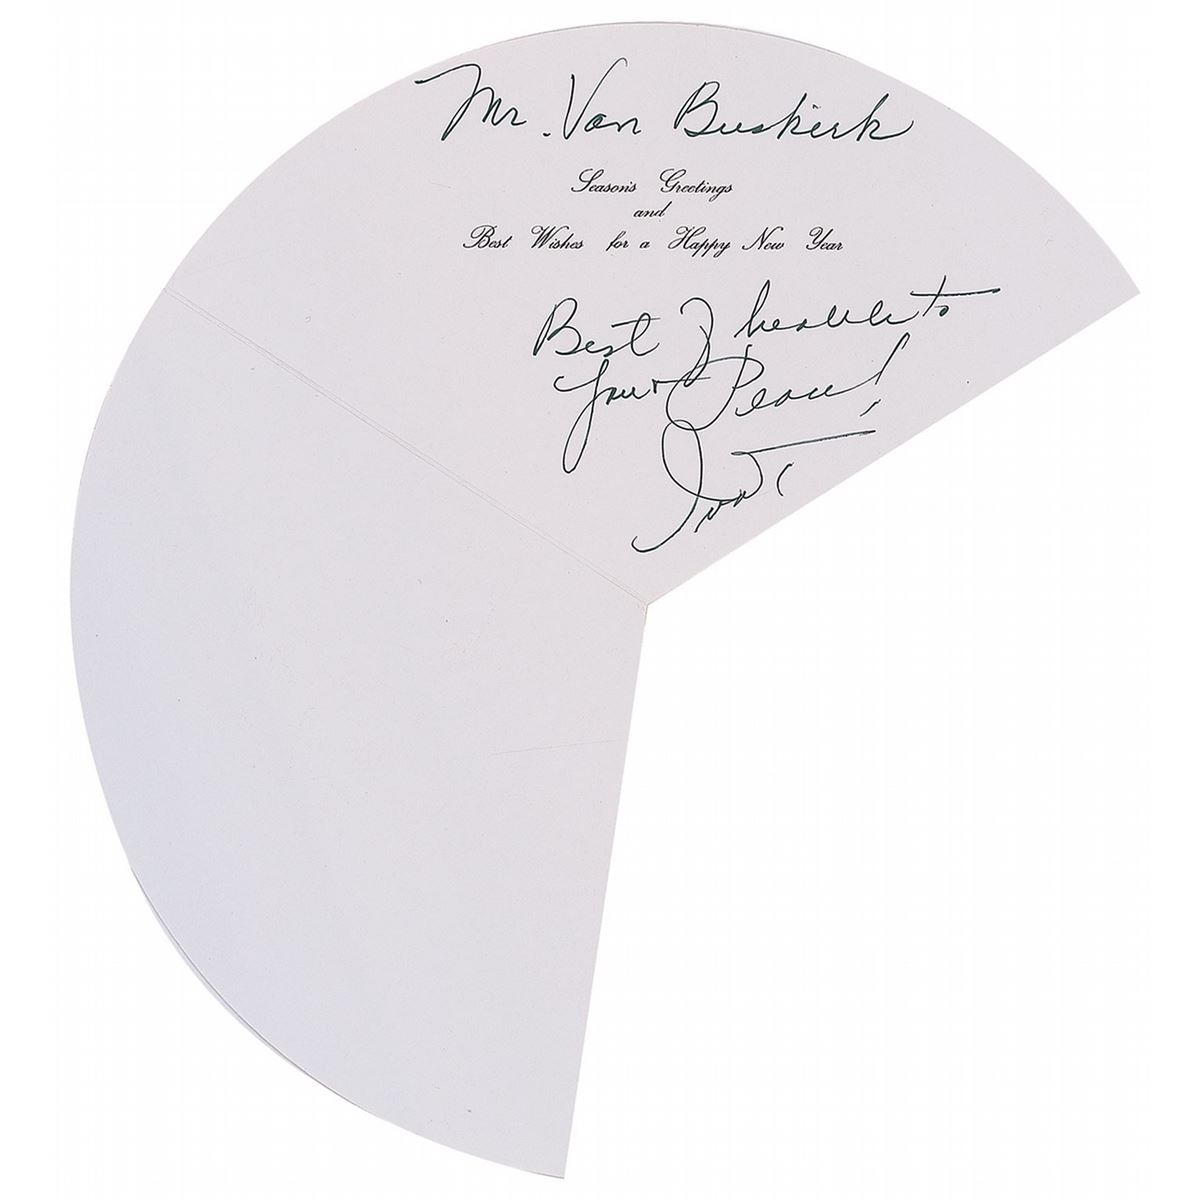 Mr. Van Buskirk
Season's Greetings
and
Best Wishes for a Happy New Year
Best of health to
your Peace!